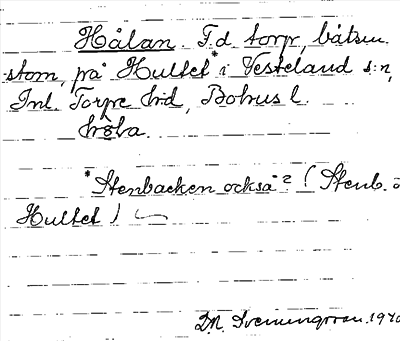 Hålan. F.d. torp, båtsm.
stom, på Hultet* i Vesteland s:n,
Inl. Torpe hrd, Bohus l.
*Stenbacken också? (Stenb. =
Hultet)
D.N. Svenungsson. 1970